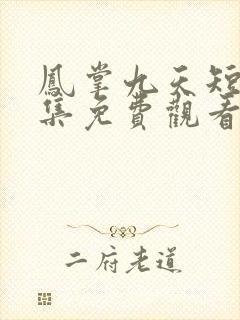 鳳掌九天短
集免費觀看
二府老道